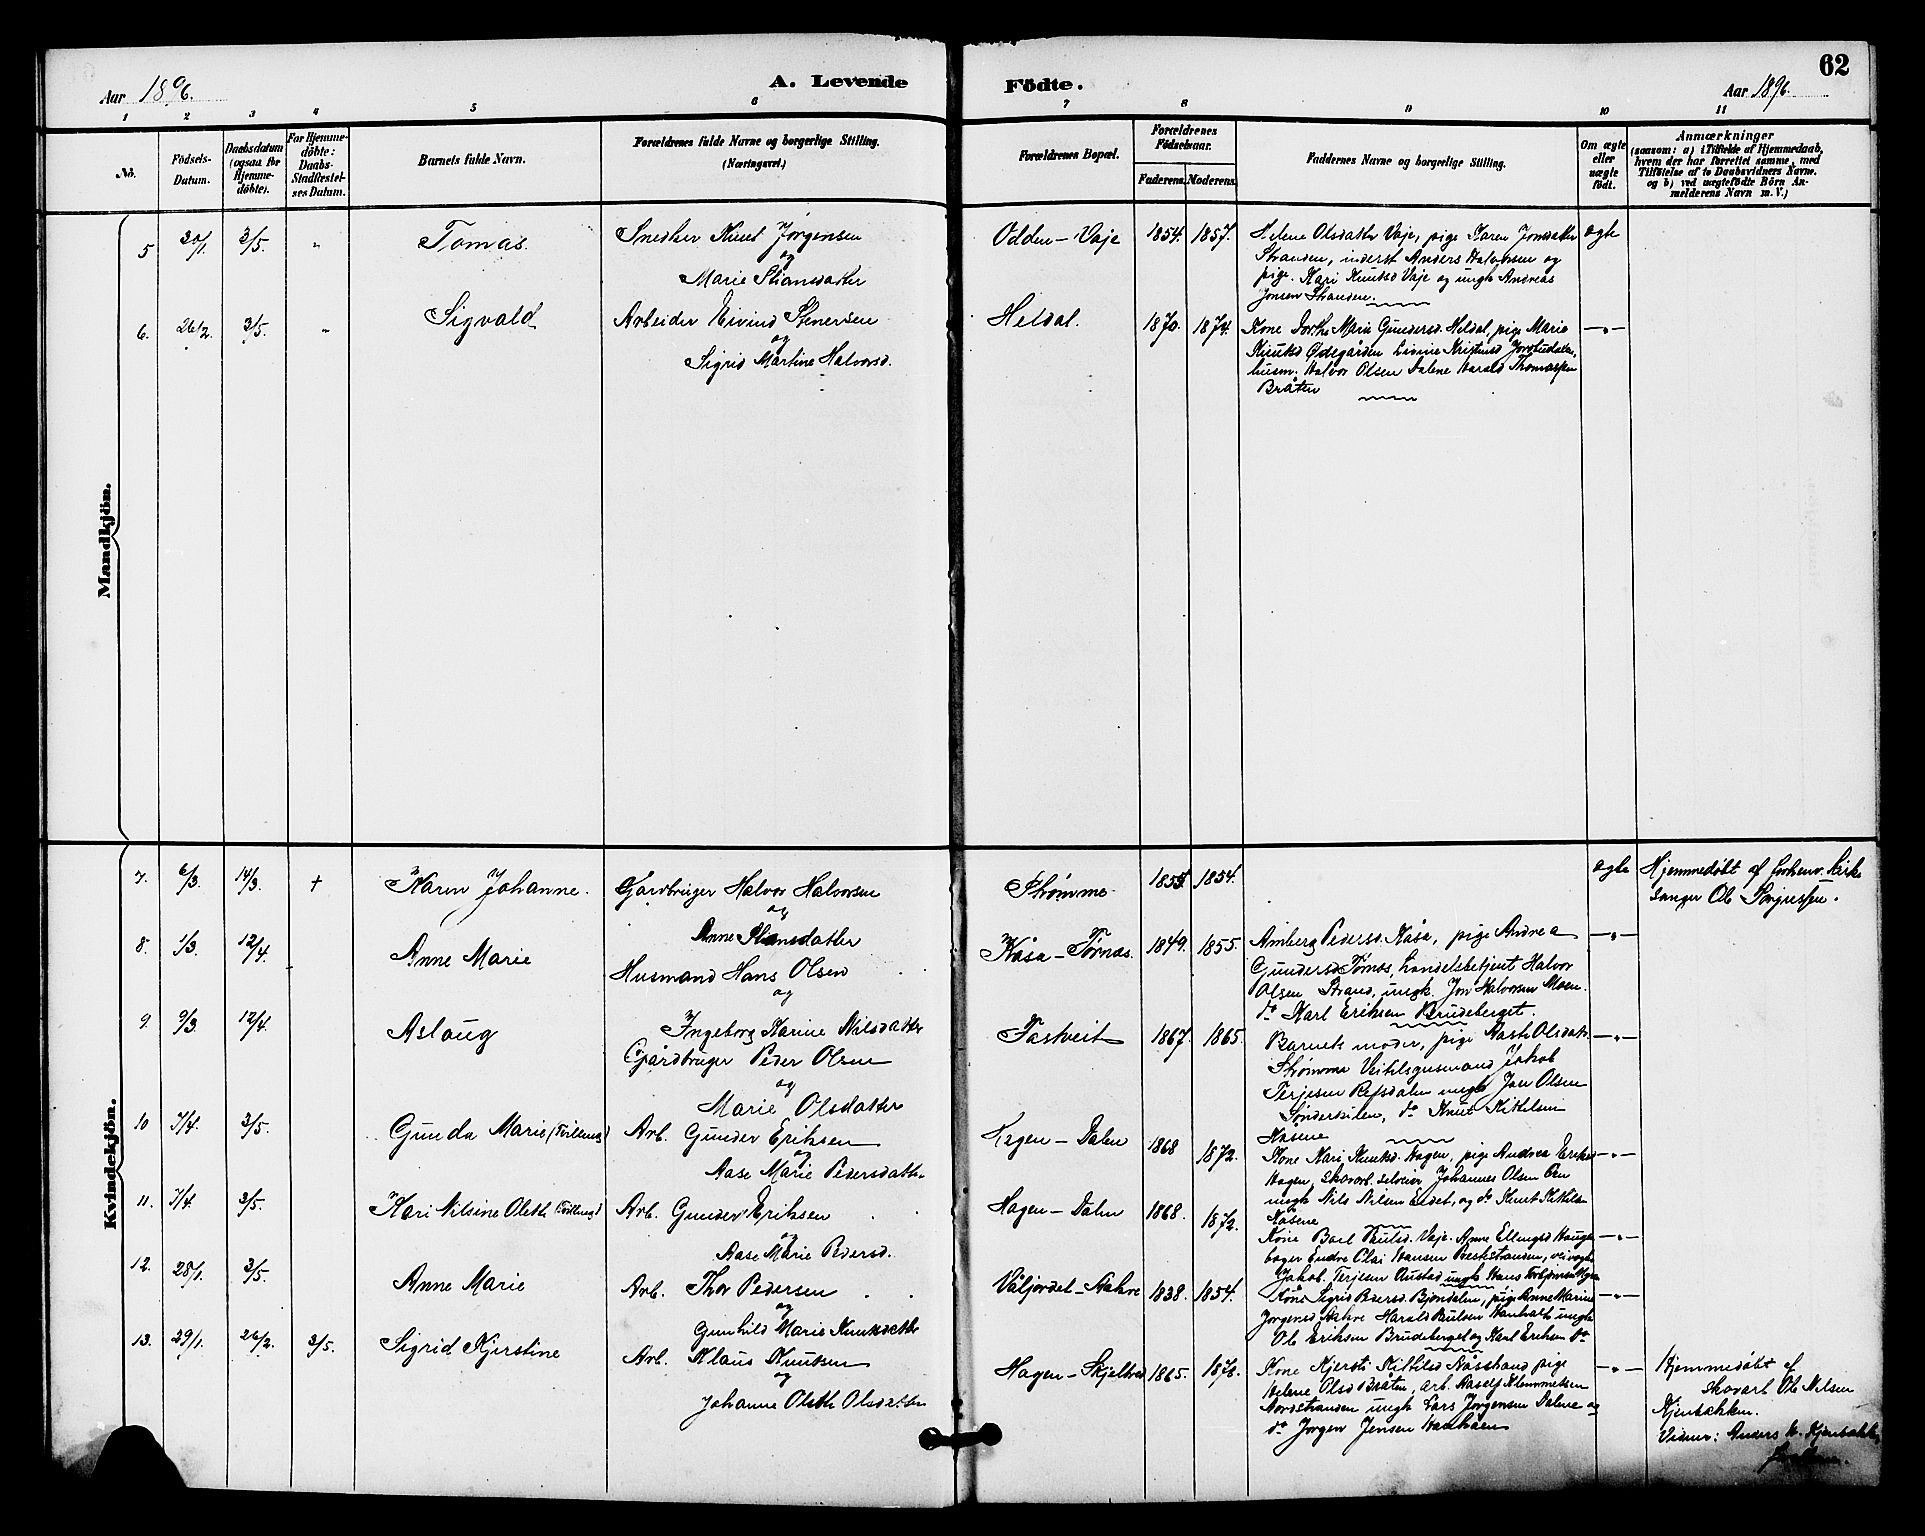 62
Aar 1896.
A. Levende Födte.
Aar 1896.
1 2 3 4 5 6 7 8 9 10 11
No.
Födsels-Datum.
Daabsdatum (ogsaa for Hjemme-döbte).
For Hjemme-döbte: Daabs-Stadfestel-ses Datum.
Barnets fulde Navn.
Forældrenes fulde Navne og borgerlige Stilling.
(Næringsvei.)
Forældrenes Bopæl.
Forældrenes Födselsaar.
Faderens. Moderens.
Faddernes Navne og borgerlige Stilling.
Om ægte eller uægte födt.
Anmærkninger
(saasom: a) i Tilfælde af Hjemmedaab,
hvem der har forrettet samme, med
Tilföielse af to Daabsvidners Navne,
og b) ved uægtefödte Börn An-
melderens Navn m. V.)
Mandkjön.
5 20/1. 3/5. " Tomas. Snedker Knut Jørgensen
og
Marie Stiansdatter
Odden - Vaje 1854. 1857. Helene Olsdatter Vaje, pige Karen Jonsdatter
Stranden, inderst Anders Halvorsen og
pige. Kari Knutsd Vaje og ungk Andreas
Jonsen Stranden.
ægte
6. 26/2. 3/5. " Sigvald Arbeider Eivind Stenersen
og
Sigrid Martine Halvorsd.
Heldal. 1870. 1874. Kone Dorthe Marie Gundersd. Heldal, pige Marie
Knutsd Ødegården
husm. Halvor Olsen Dalene Harald Thomassen
Bråten
- " -
Kvindekjön.
7. 6/3. 14/3. + Karen Johanne. Gårdbruger Halvor Halvorsen
og
Anne Stiansdatter
Strømme 1855 1854. ægte
Hjemmedøbt af forhenv. Kirke
sanger Ole
8. 1/3. 12/4. Anne Marie
Husmand Hans Olsen
og
Ingeborg Karine Nilsdatter
Kåsa - Tørnæs. 1849. 1855. Amberg Pedersd. Kåsa, pige Andrea
Gundersd Tørnes, Handelsbetjent Halvor
Olsen Strand, ungk. Jon Halvorsen Moen.
do Karl Eriksen Brudeberget.
- " -
9. 9/3. 12/4. Aslaug
Gårdbruger Peder Olsen
og
Marie Olsdatter
Tastveit 1867. 1865. Barnets moder, pige Olsdatt.
Strømme Jakob
Terjesen Refsdalen ungk Jon Olsen
do Knut Kittelsen
Kåsene
- " -
10 7/4. 3/5. Gunda Marie (Tvilling) Arb. Gunder Eriksen
og
Aase Marie Pedersdatter
Hagen - Dalen 1868 1872. Kone Kari Knutsd. Hagen, pige Andrea Eriksd
Hagen, Skovarb. selveier Johannes Olsen
ungk Nils Nilsen Eidet, og do Knut Kittelsen
Kåsene
- " -
11. 7/4. 3/5. Kari Nilsine Oleth (Tvilling) Arb. Gunder Eriksen
og
Aase Marie Pedersd.
Hagen - Dalen 1868. 1872. Kone Boel Paulsd. Vaje. Anne Ellingsd Hauge
Endre Olai Hansen Prestestranden,
Jakob Terjesen Austad ungk Hans
- " -
12. 28/1. 3/5. Anne Marie Arb. Thor Pedersen
og
Gunhild Marie Knutsdatter
Våljordet - Aakre 1838. 1854. Kone Sigrid Pedersd Bjøndalen, pige Anne Marine
Jørgensd Aakre Harald Paulsen ungk
Ole Eriksen Brudeberget og Karl Eriksen do
- " -
13. 29/1. 26/2. 3/5. Sigrid Kjerstine Arb. Klaus Knutsen
og
Johanne Oleth Olsdatter
Hagen - 1865. 187 Kone Kjersti Kittilsd pige
Helene Olsd Bråten, arb. Klemmetsen
Nordstranden ungk Lars Jørgensen Dalene og
do Jørgen Jensen
- " -
Hjemmedøbt af
skovarb Ole Nilsen
Vidner: Anders